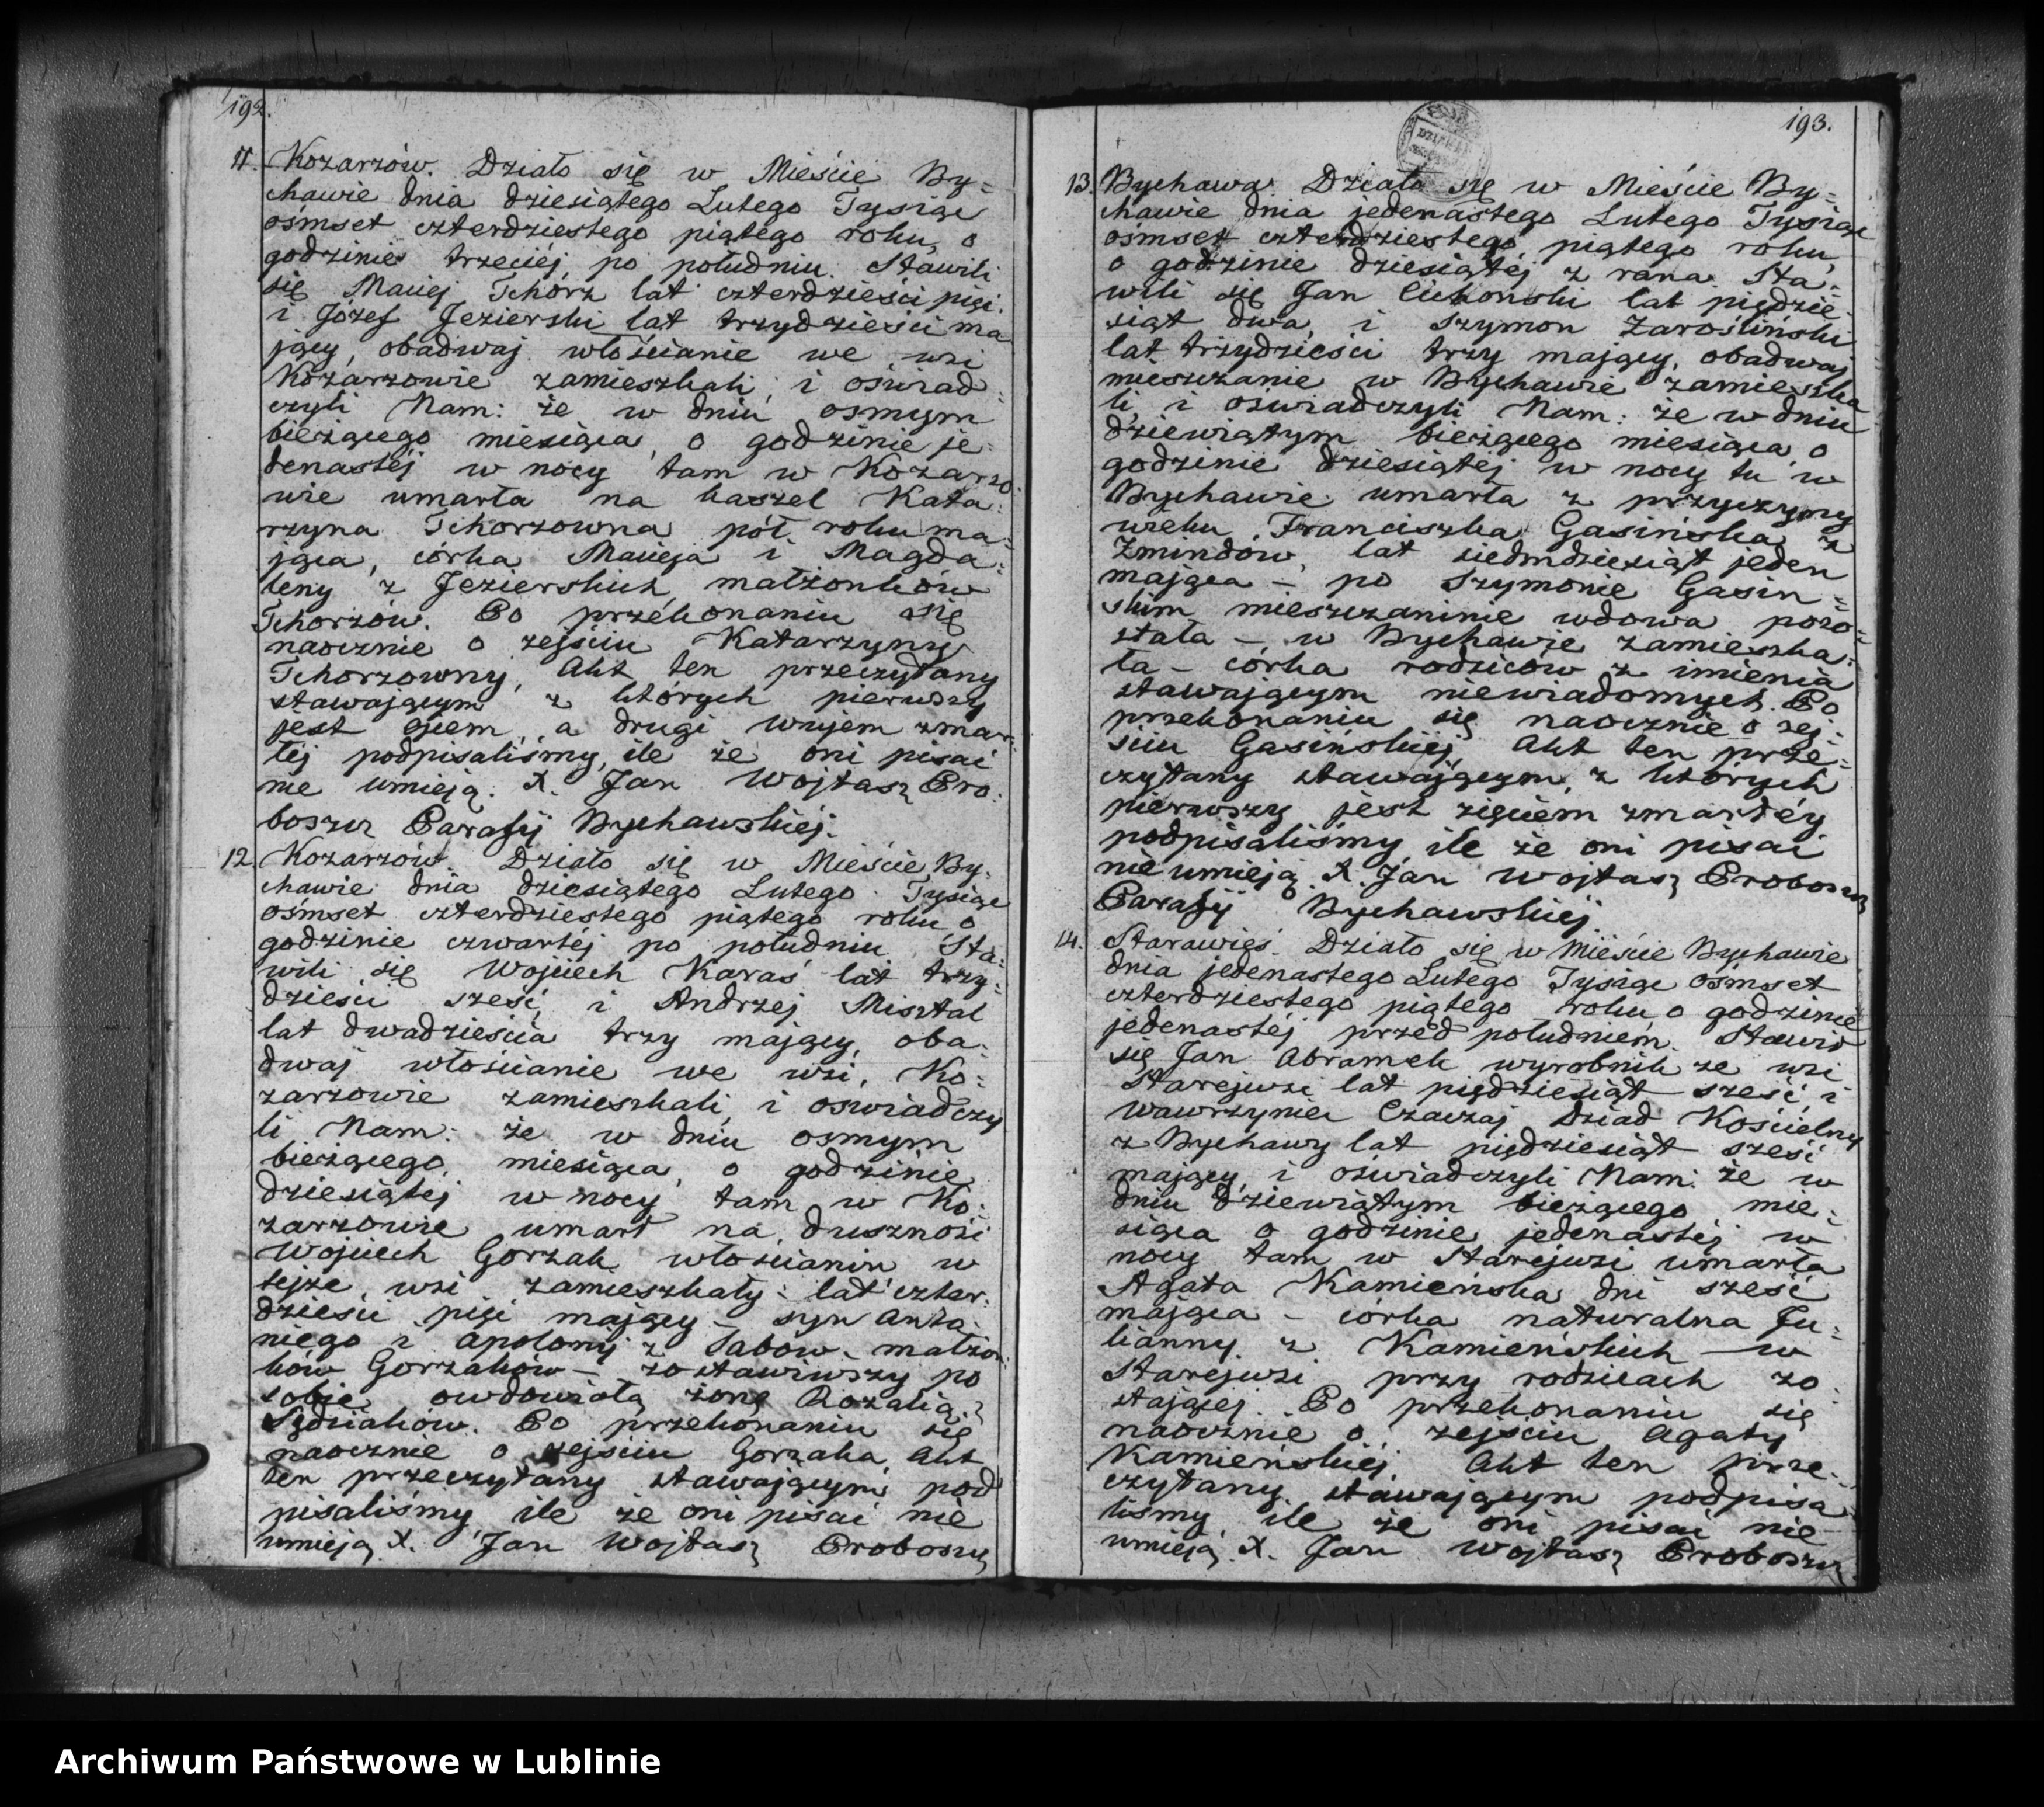 192.
11. Kozarzów. Działo się w Mieście By=
chawie dnia dziesiątego Lutego Tysiąc
ośmset czterdziestego piątego roku, o
godzinie trzeciéj po południu. Stawili
się Maciej Tchorz lat czterdzieści pięć
i Józef Jezierski lat trzydzieści ma
jący, obadwaj włościanie we wsi
Kozarzowie zamieszkali, i oświad=
czyli Nam: że w dniu osmym
bieżącego miesiąca, o godzinie je=
denastéj w nocy tam w Kozarzo=
wie umarła na kaszel Kata=
rzyna Tchorzowna pół roku ma=
jąca, córka Macieja i Magda=
leny z Jezierskich małżonków
Tchorzów. Po przekonaniu się
naocznie o zejściu Katarzyny
Tchorzowny, Akt ten przeczytany
stawającym z których pierwszy
jest ojcem, a drugi wujem zmar=
łej podpisaliśmy, ile że oni pisać
nie umieją. X. Jan Wojtasz Pro=
boszcz Parafij Bychawskiej.
12. Kozarzów. Działo się w Mieście By=
chawie dnia dziesiątego Lutego Tysiąc
ośmset czterdziestego piątego roku o
godzinie czwartéj po południu Sta=
wili się Wojciech Karaś lat trzy=
dzieści sześć, i Andrzej Misztal
lat dwadzieścia trzy mający, oba=
dwaj włościanie we wsi, Ko=
zarzowie zamieszkali, i oswiadczy
li Nam: że w dniu osmym
bieżącego, miesiąca, o godzinie
dziesiątej w nocy tam w Ko=
zarzowie umarł na duszność
Wojciech Gorzak włościanin w
tejże wsi zamieszkały: lat czter=
dzieści pięć mający – syn Anto=
niego i Apolonij z Sabów małżon=
ków Gorzaków – zostawiwszy po
sobie owdowiałą żonę Rozalią z
Sędziaków. Po przekonaniu się
naocznie o zejściu Gorzaka, Akt
ten przeczytany stawającym pod
pisaliśmy ile że oni pisać nie
umieją X. Jan Wojtasz Proboszcz
193.
13. Bychawa. Działo się w Mieście By=
chawie dnia jedenastego Lutego Tysiąc
ośmset czterdziestego piątego roku,
o godzinie dziesiątéj z rana. Sta=
wili się Jan Cichonski lat pięćdzie=
siąt dwa, i Szymon Zarośliński
lat trzydzieści trzy mający, obadwaj
mieszczanie w Bychawie zamieszka
li, i oswiadczyli Nam: że w dniu
dziewiątym bieżącego miesiąca, o
godzinie dziesiątéj w nocy tu w
Bychawie umarła z przyczyny
wieku Franciszka Gasińska z
Zmindów, lat siedmdziesiąt jeden
mająca – po Szymonie Gasiń=
skim mieszczaninie wdowa pozo=
stała – w Bychawie zamieszka=
ła – córka rodziców z imienia
stawającym niewiadomych. Po
przekonaniu się naocznie o zej=
ściu Gasińskiéj, Akt ten prze=
czytany stawającym, z których
pierwszy jest zięciem zmarłéy
podpisaliśmy ile że oni pisać
nie umieją. X. Jan Wojtasz Proboszcz
Parafij Bychawskiéj
14. Starawieś. Działo się w Mieście Bychawie
dnia jedenastego Lutego Tysiąc ośmset
czterdziestego piątego roku o godzinie
jedenastéj przed południem. Stawił
się Jan Abramek wyrobnik ze wsi
Starejwsi lat pięćdziesiąt sześć, i
Wawrzyniec Czaczaj Dziad Kościelny
z Bychawy lat pięćdziesiąt sześć
mający, i oświadczyli Nam: że w
dniu dziewiątym bieżącego mie=
siąca o godzinie jedenastéj w
nocy tam w Starejwsi umarła
Agata Kamieńska dni sześć
mająca – córka naturalna Ju=
lianny z Kamieńskich – w
Starejwsi przy rodzicach zo=
stającej. Po przekonaniu się
naocznie o zejściu Agaty
Kamieńskiéj. Akt ten prze=
czytany stawającym podpisa
liśmy, ile że oni pisać nie
umieją. X. Jan Wojtasz Proboszcz
Archiwum Państwowe w Lublinie